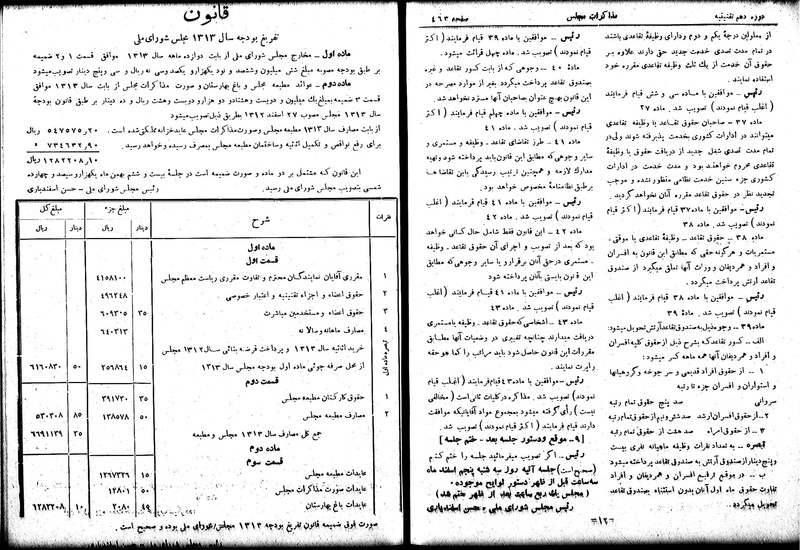 دوره دهم تقنینیه
مذاکرات مجلس
صفحه ۴۶۳
از معلولین درجه یکم و دوم و دارای وظیفهٔ تقاعدی باشند
در تمام مدت تصدی خدمت جدید حق دارند علاوه بر
حقوق آن خدمت از یک ثلث وظیفه تقاعدی مقرره خود
استفاده نمایند.
رئیس ـ موافقین با ماده سی و شش قیام فرمایند
( اغلب قیام نمودند ) تصویب شد. ماده ۳۷
ماده ۳۷ ـ صاحبان حقوق تقاعد یا وظیفه تقاعدی
میتوانند در ادارات کشوری بخدمت پذیرفته شوند ولی در
تمام مدت تصدی شغل جدید از دریافت حقوق یا وظیفهٔ
تقاعدی محروم خواهند بود و مدت خدمت در ادارات
کشوری جزء سنین خدمت نظامی منظور نشده و موجب
تجدید نظر در حقوق تقاعد مقرره آنان نخواهد گردید.
رئیس ـ موافقین با ماده ۳۷ قیام فرمایند ( اکثر قیام
نمودند ) تصویب شد. ماده ۳۸
ماده ۳۸ ـ حقوق تقاعد ـ وظیفهٔ تقاعدی با موقتی،
مستمریات و هرگونه حقی که مطابق این قانون به افسران
و افراد و همردیفان و وراث آنها تعلق میگیرد از صندوق
تقاعد ارتش پرداخت میگردد.
رئیس ـ موافقین با ماده ۳۸ قیام فرمایند ( اغلب
قیام نمودند ) تصویب شد. ماده ۳۹
ماده ۳۹ ـ وجوه ذیل به صندوق تقاعد ارتش تحویل میشود:
الف ـ کسور تقاعد که بشرح ذیل از حقوق کلیه افسران
و افراد و همردیفان آنها همه ماهه کسر میشود:
۱ ـ از حقوق افراد قدیمی و سرجوخه و گروهبانها
و استواران و افسران جزء تا رتبه
سروانی صد پنج حقوق تمام رتبه
۲ ـ از حقوق افسران ارشد صد شش و نیم از حقوق تمام رتبه
۳ ـ از حقوق امراء صد هشت از حقوق تمام رتبه
تبصره ـ به تعداد نفرات وظیفه ماهیانه نفری بیست
و پنج دینار از صندوق آرتش به صندوق تقاعد پرداخته میشود
ب ـ در موقع ترفیع افسران و همردیفان و افراد
تفاوت حقوق ماه اول آنان بدون استثناء بصندوق تقاعد
تحویل میگردد.
رئیس ـ موافقین با ماده ۳۹ قیام فرمایند ( اکثر
قیام نمودند ) تصویب شد. ماده چهل قرائت میشود.
ماده ۴۰ ـ وجوهی که از بابت کسور تقاعد و غیره
بصندوق تقاعد پرداخت میگردد بغیر از موارد مصرحه در
این قانون بهیچ عنوان بصاحبان آنها مسترد نخواهد شد.
رئیس ـ موافقین با ماده چهلم قیام فرمایند ( اکثر
قیام نمودند ) تصویب شد. ماده ۴۱
ماده ۴۱ ـ طرز تقاضای تقاعد ـ وظیفه و مستمری و
سایر وجوهی که مطابق این قانون باید پرداخته شود و تهیه
مدارک لازمه و همچنین ترتیب رسیدگی باین تقاضاها
بر طبق نظامنامهٔ مخصوص خواهد بود.
رئیس ـ موافقین با ماده ۴۱ قیام فرمایند ( اغلب
قیام نمودند ) تصویب شد. ماده ۴۲
ماده ۴۲ ـ این قانون فقط شامل حال کسانی خواهد
بود که بعد از تصویب و اجرای آن حقوق تقاعد ـ وظیفه
ـ مستمری در حق آنان برقرار و یا سایر وجوهی که مطابق
این قانون بایستی بآنان پرداخته شود
رئیس ـ موافقین با ماده ۴۲ قیام فرمایند ( اغلب
قیام نمودند ) تصویب شد. ماده ۴۳
ماده ۴۳ ـ اشخاصی که حقوق تقاعد ـ وظیفه یا مستمری
دریافت میدارند چنانچه تغییری در وضعیات آنها مطابق
مقررات این قانون حاصل شود باید مراتب را کما هو حقه
راپرت نمایند.
رئیس ـ موافقین با ماده ۴۳ قیام فرمایند ( اغلب قیام
نمودند ) تصویب شد. مذاکره در کلیات ثانی است ( مخالفی
نیست ) رأی گرفته میشود بمجموع مواد آقایانیکه موافقت
دارند قیام فرمایند ( اکثر قیام نمودند ) تصویب شد
[ ۹ ـ موقع و دستور جلسه بعد ـ ختم جلسه ]
رئیس ـ اگر تصویب میفرمائید جلسه را ختم کنیم
( صحیح است ) جلسه آتیه روز سه شنبه پنجم اسفند ماه
سه ساعت قبل از ظهر دستور لوایح موجوده.
( مجلس یک ربع ساعت بعد از ظهر ختم شد )
رئیس مجلس شورای ملی ـ حسن اسفندیاری
ـ۱۲ـ
قانون
تفریغ بودجه سال ۱۳۱۳ مجلس شورای ملی
ماده اول ـ مخارج مجلس شورای ملی از بابت دوازده ماهه سال ۱۳۱۳ موافق قسمت ۱ و ۲ ضمیمه
بر طبق بودجه مصوبه مبلغ شش میلیون و ششصد و نود و یکهزار و یکصد و سی و نه ریال و سی و پنج دینار تصویب میشود
ماده دوم ـ عوائد مطبعهٔ مجلس و باغ بهارستان و صورت مذاکرات مجلس از بابت سال ۱۳۱۳ موافق
قسمت ۳ ضمیمه بمبلغ یک میلیون و دویست و هشتاد و دو هزار و دویست و هشت ریال و ده دینار بر طبق قانون بودجهٔ
سال ۱۳۱۳ مجلس مصوب ۲۷ اسفند ۱۳۱۲ بطریق ذیل تصویب میشود
از بابت مصارف سال ۱۳۱۳ مطبعه مجلس و صورت مذاکرات مجلس عاید خزانه مملکتی شده است. ۵۴۷۵۷۵٫۲۰ ریال
برای رفع نواقص و تکمیل اثاثیه و ساختمان مطبعه مجلس بمصرف رسیده و خواهد رسید. ۷۳۴۶۳۲٫۹۰ «
۱۲۸۲۲۰۸٫۱۰ ریال
این قانون که مشتمل بر دو ماده و صورت ضمیمه است در جلسهٔ بیست و ششم بهمن ماه یکهزار و سیصد و چهارده
شمسی بتصویب مجلس شورای ملی رسید. رئیس مجلس شورای ملی ـ حسن اسفندیاری
نمرات شرح مبلغ جزء مبلغ کل
دینار ریال دینار ریال
ماده اول
قسمت اول
۱ مقرری آقایان نمایندگان محترم و تفاوت مقرری ریاست معظم مجلس ۴۱۵۸۱۰۰
۲ حقوق اعضاء و اجزاء تقنینیه و اعتبار خصوصی ۴۹۶۲۴۸
۳ حقوق اعضاء و مستخدمین مباشرت ۳۵ ۶۰۹۳۰۵
۴ مصارف ماهانه و سالانه ۶۴۰۳۱۳
تبصره ماده اول
خرید اثاثیه سال ۱۳۱۳ و پرداخت قرضه بنائی سال ۱۳۱۲ مجلس
از محل صرفه جوئی ماده اول بودجه مجلس سال ۱۳۱۳ ۱۵ ۲۵۶۸۶۴ ۵۰ ۶۱۶۰۸۳۰
قسمت دوم
۱ حقوق کارکنان مطبعه مجلس ۳۵ ۳۹۱۷۳۰
۲ مصارف مطبعه مجلس ۵۰ ۱۳۸۵۷۸ ۸۵ ۵۳۰۳۰۸
جمع کل مصارف سال ۱۳۱۳ مجلس و مطبعه ۳۵ ۶۶۹۱۱۳۹
ماده دوم
قسمت سوم
عایدات مطبعه مجلس ۱۵ ۱۲۶۷۳۲۶
عایدات صورت مذاکرات مجلس ۵۰ ۱۲۸۰۱
عایدات باغ بهارستان ۴۵ ۲۰۸۰ ۱۰ ۱۲۸۲۲۰۸
صورت فوق ضمیمه قانون تفریغ بودجه ۱۳۱۳ مجلس شورای ملی بوده و صحیح است.